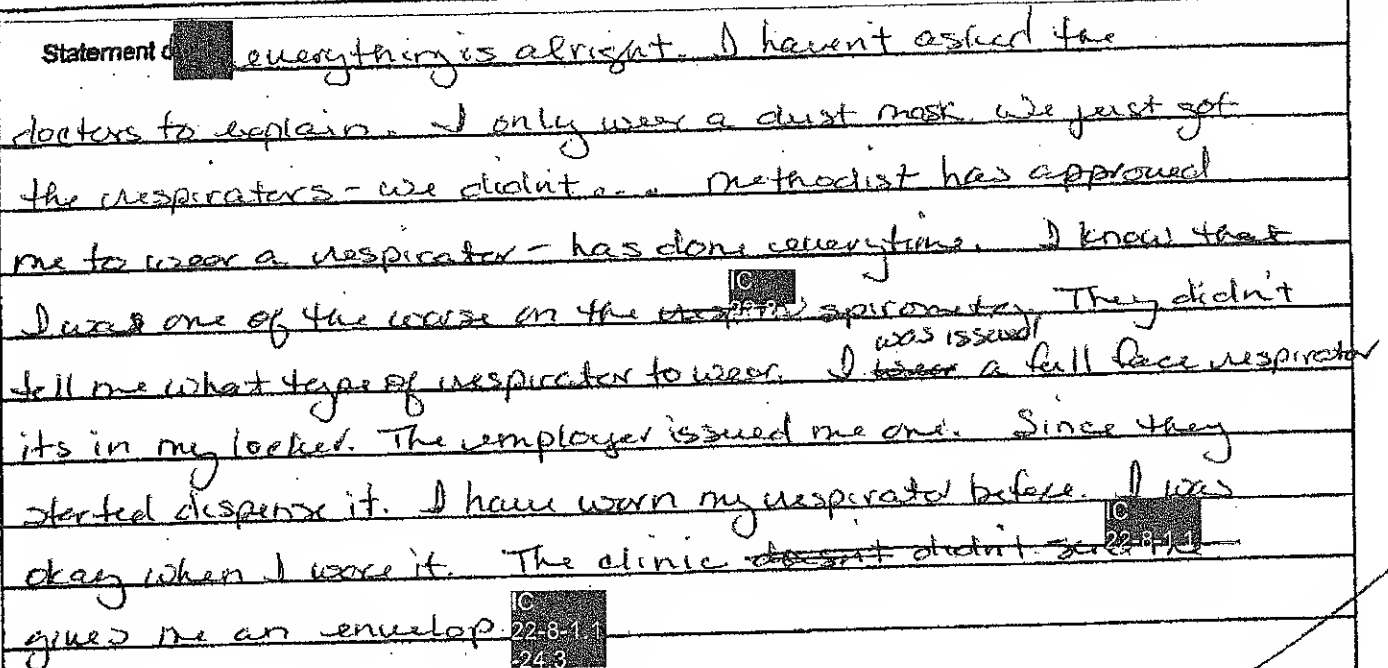 Statement everything is alright. I haven't asked the
doctors to explain. I only wear a dust mask. We just got
the respirators - we didn't... methodist has approved
me to wear a respirator - has done everytime. I know that
IC
I was one of the worse on the spirometry. They didn't
was issued
tell me what type of respirator to wear. I wear a full face respirator
its in my locker. The employer issued me one. Since they
started dispense it. I have worn my respirator before. I was
IC
22-8-1.1
okay when I wore it. The clinic doesn't didn't
IC
gives me an envelop. 22-8-1.1
-24.3